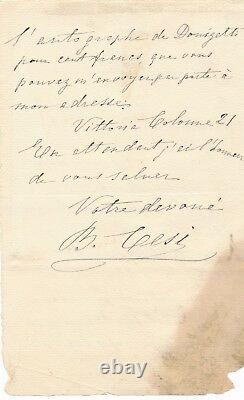 l'autographe de Donizetti
pour cent francs que vous
pouvez m'envoyer par poste à
mon adresse
Vittoria Colonna 21
En attendant j'ai l'honneur
de vous saluer
Votre devoué
B. Cesi
ebay